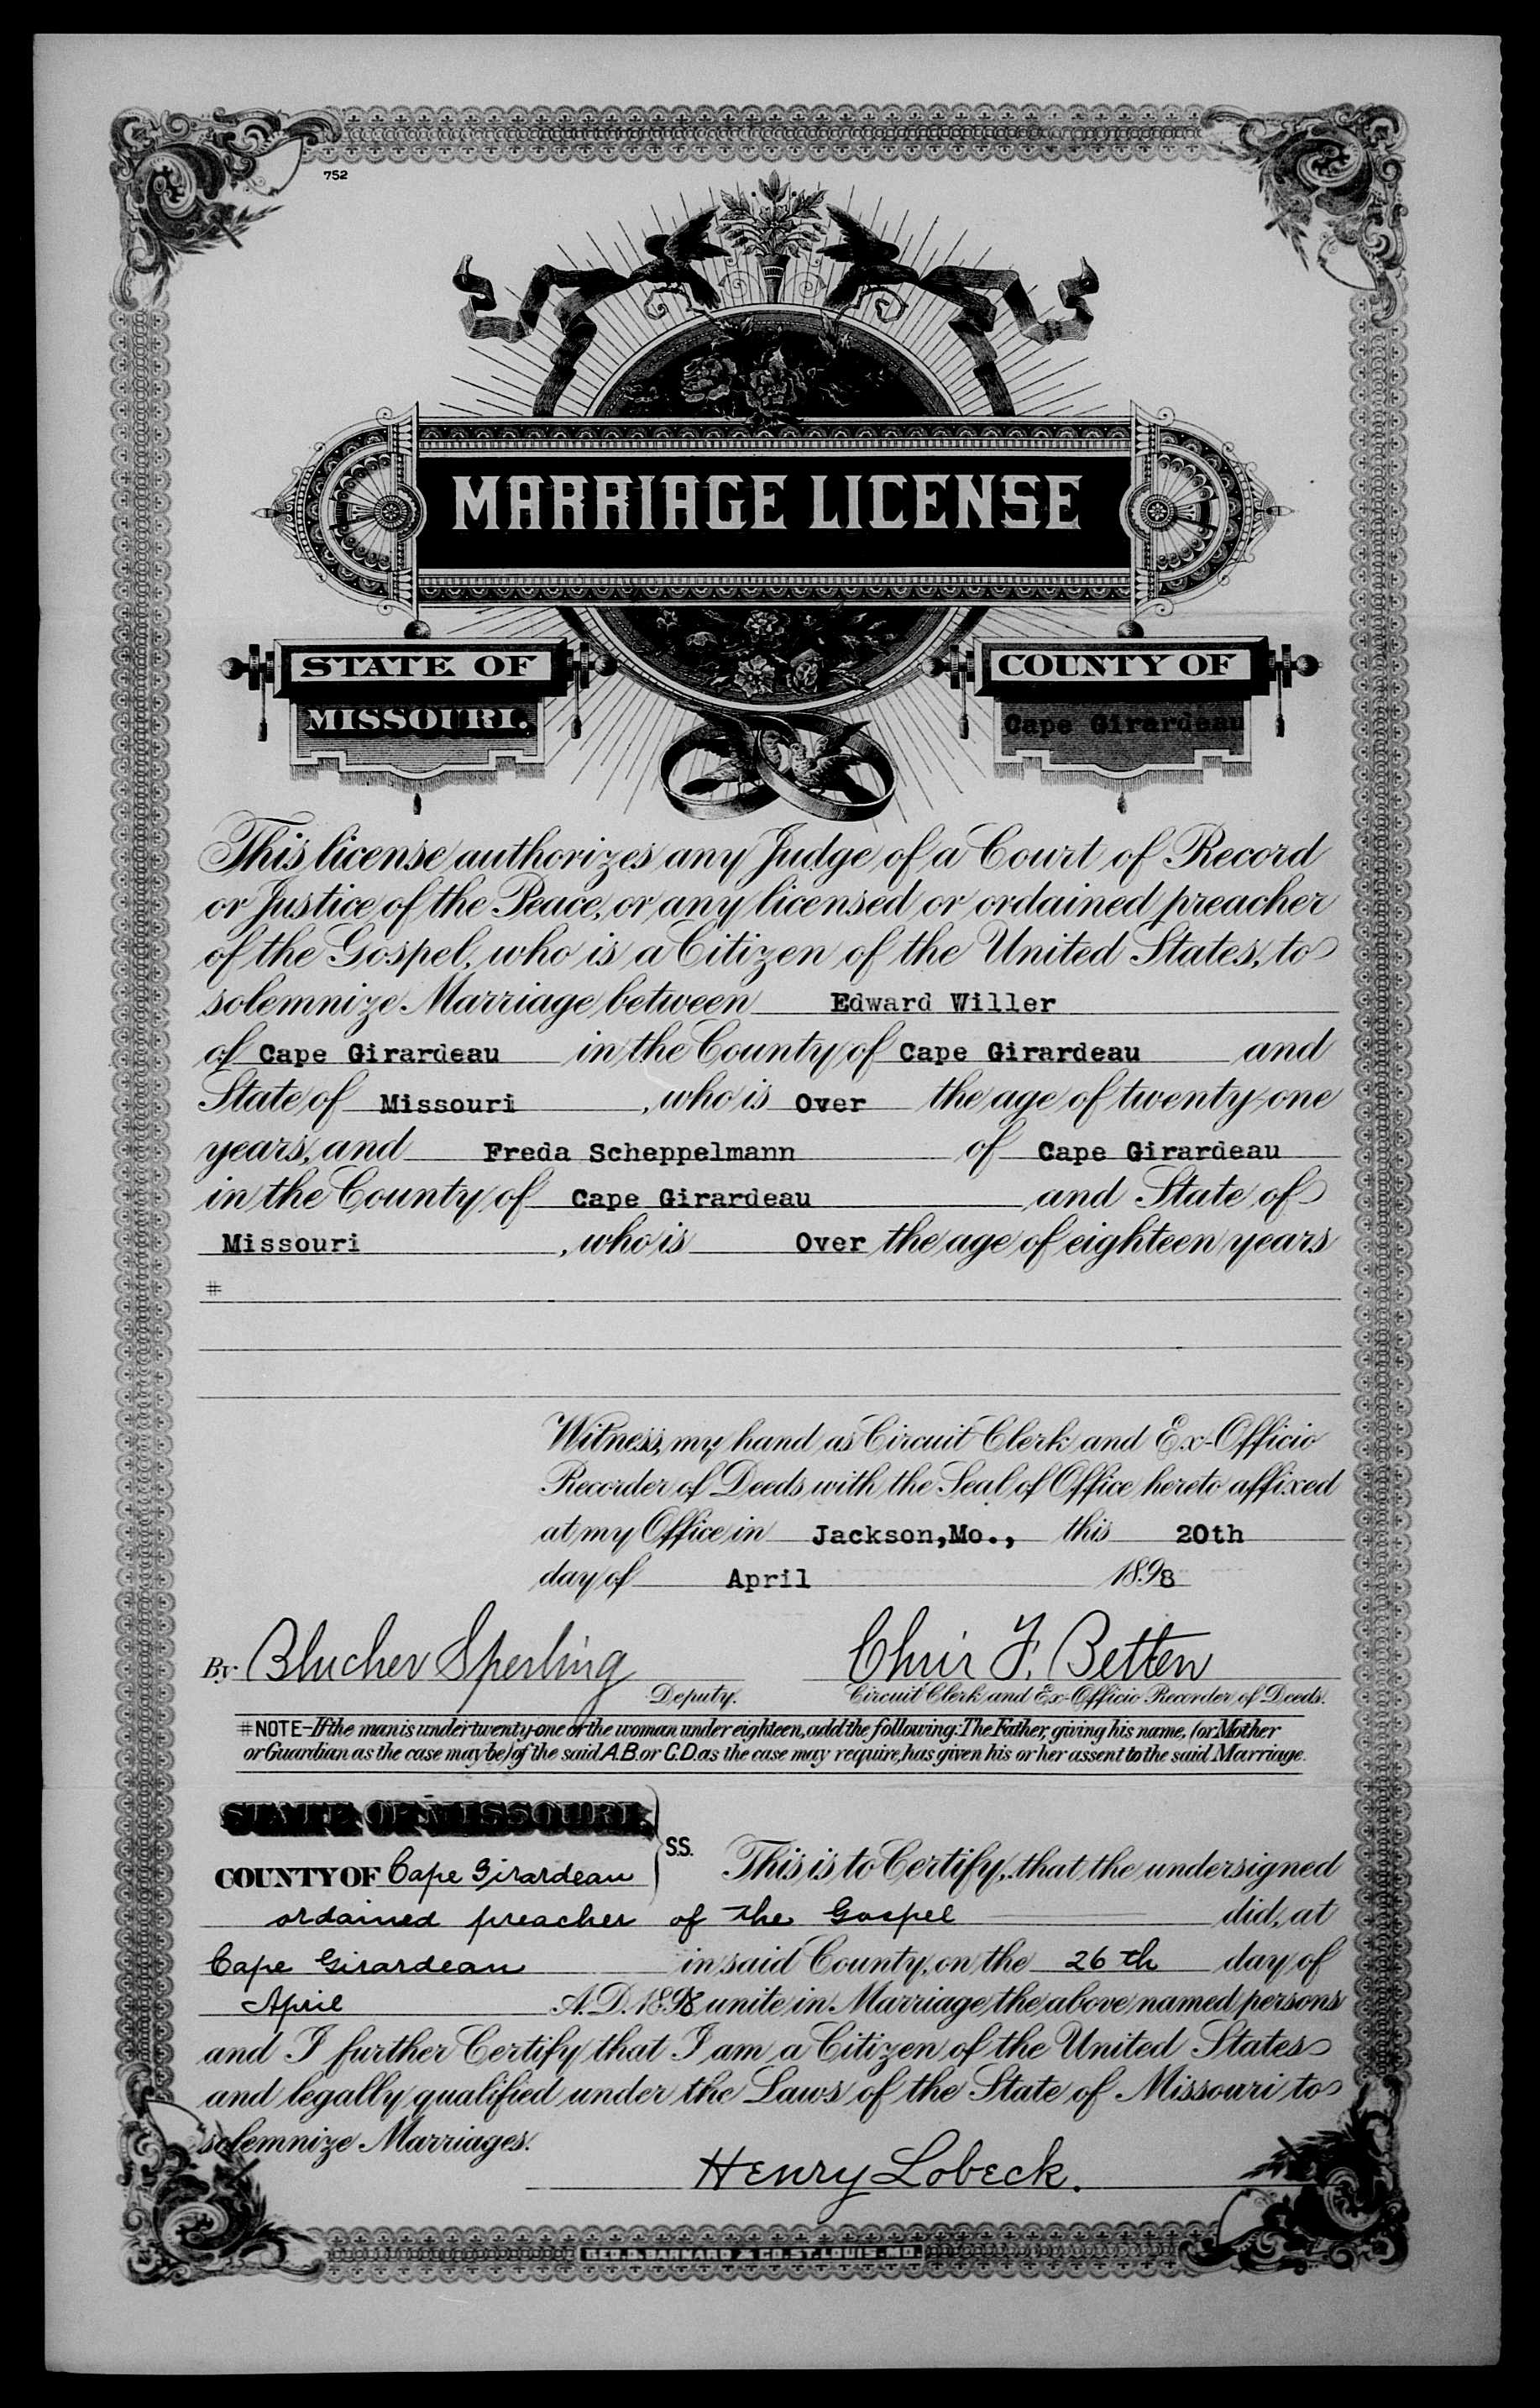 752
MARRIAGE LICENSE
STATE OF
MISSOURI.
COUNTY OF
Cape Girardeau
This license authorizes any Judge of a Court of Record
or Justice of the Peace, or any licensed or ordained preacher
of the Gospel, who is a Citizen of the United States, to
solemnize Marriage between Edward Willer
of Cape Girardeau in the County of Cape Girardeau and
State of Missouri, who is Over the age of twenty-one
years, and Freda Scheppelmann of Cape Girardeau
in the County of Cape Girardeau and State of
Missouri, who is Over the age of eighteen years
#
Witness, my hand as Circuit Clerk and Ex-Officio
Recorder of Deeds with the Seal of Office hereto affixed
at my Office in Jackson, Mo., this 20th
day of April 1898
By Blucher Sperling
Deputy.
Chris F. Betten
Circuit Clerk and Ex-Officio Recorder of Deeds.
#NOTE-If the man is under twenty-one or the woman under eighteen, add the following: The Father, giving his name, (or Mother
or Guardian as the case may be) of the said A.B. or C.D. as the case may require, has given his or her assent to the said Marriage.
STATE OF MISSOURI,
COUNTY OF Cape Girardeau
SS.
This is to Certify, that the undersigned
ordained preacher of the Gospel did, at
Cape Girardeau in said County, on the 26th day of
April A.D. 1898 unite in Marriage the above named persons
and I further Certify that I am a Citizen of the United States
and legally qualified under the Laws of the State of Missouri to
solemnize Marriages.
Henry Lobeck.
GEO.D.BARNARD & CO.ST.LOUIS.MO.